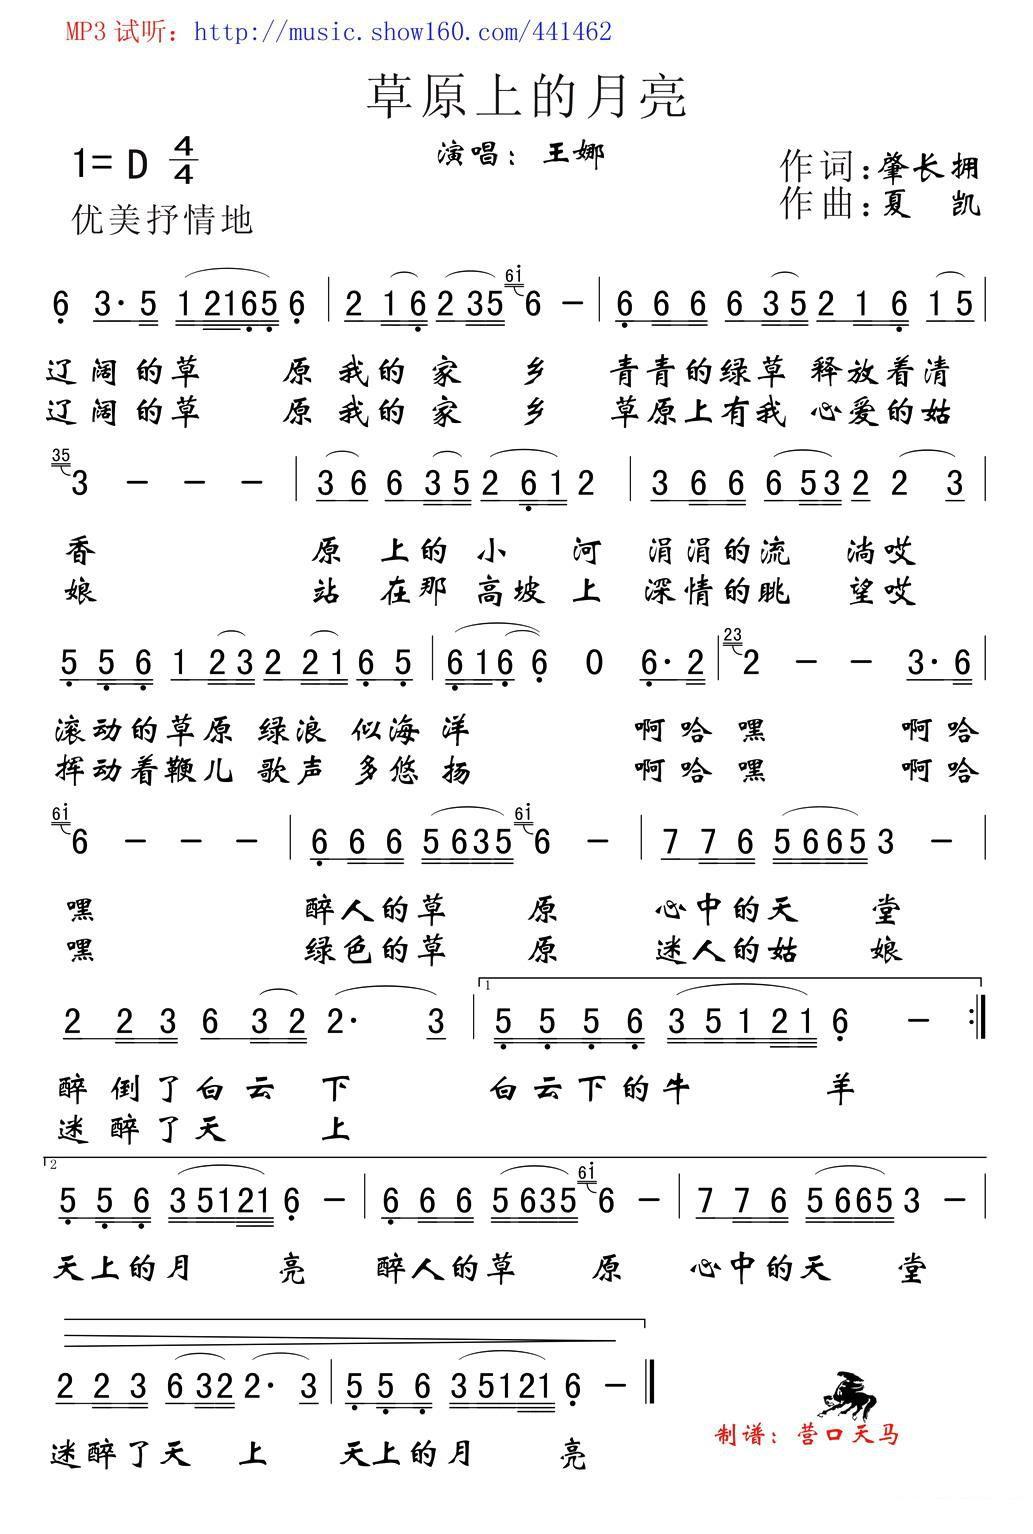 MP3 试听：http://music.show160.com/441462
草原上的月亮
1= D 4/4
演唱：王娜
作词:肇长拥
优美抒情地
作曲:夏 凯
6 3· 5 1 2165 6 | 2 1 6 2 35 6i 6 — | 6 6 6 6 3 5 2 1 6 1 5 |
辽阔的草 原 我的 家 乡 青青的绿草 释放着清
辽阔的草 原 我的 家 乡 草原上有我 心爱的姑
35 3 — — — | 3 6 6 3 5 2 6 1 2 | 3 6 6 6 53 2 2 3 |
香 原 上的 小 河 涓涓的流 淌哎
娘 站 在那 高坡 上 深情的眺 望哎
5 5 6 1 2 3 2 2 1 6 5 | 6 1 6 6 0 6· 2 | 23 2 — — 3· 6 |
滚动的草原 绿浪 似海 洋 啊哈 嘿 啊哈
挥动着鞭儿 歌声 多悠 扬 啊哈 嘿 啊哈
6i 6 — — — | 6 6 6 5635 6i 6 — | 7 7 6 5665 3 — |
嘿 醉人的草 原 心中的天 堂
嘿 绿色的草 原 迷人的姑 娘
2 2 3 6 3 2 2· 3 | 1 5 5 5 6 3 5 1 2 1 6 — :|
醉 倒了白云 下 白云下的牛 羊
迷 醉了天 上
2 5 5 6 35121 6 — | 6 6 6 5635 6i 6 — | 7 7 6 5665 3 — |
天上的月 亮 醉人的草 原 心中的天 堂
2 2 3 6 32 2· 3 | 5 5 6 35121 6 — ‖
迷醉了天 上 天上的月 亮
制谱：营口天马